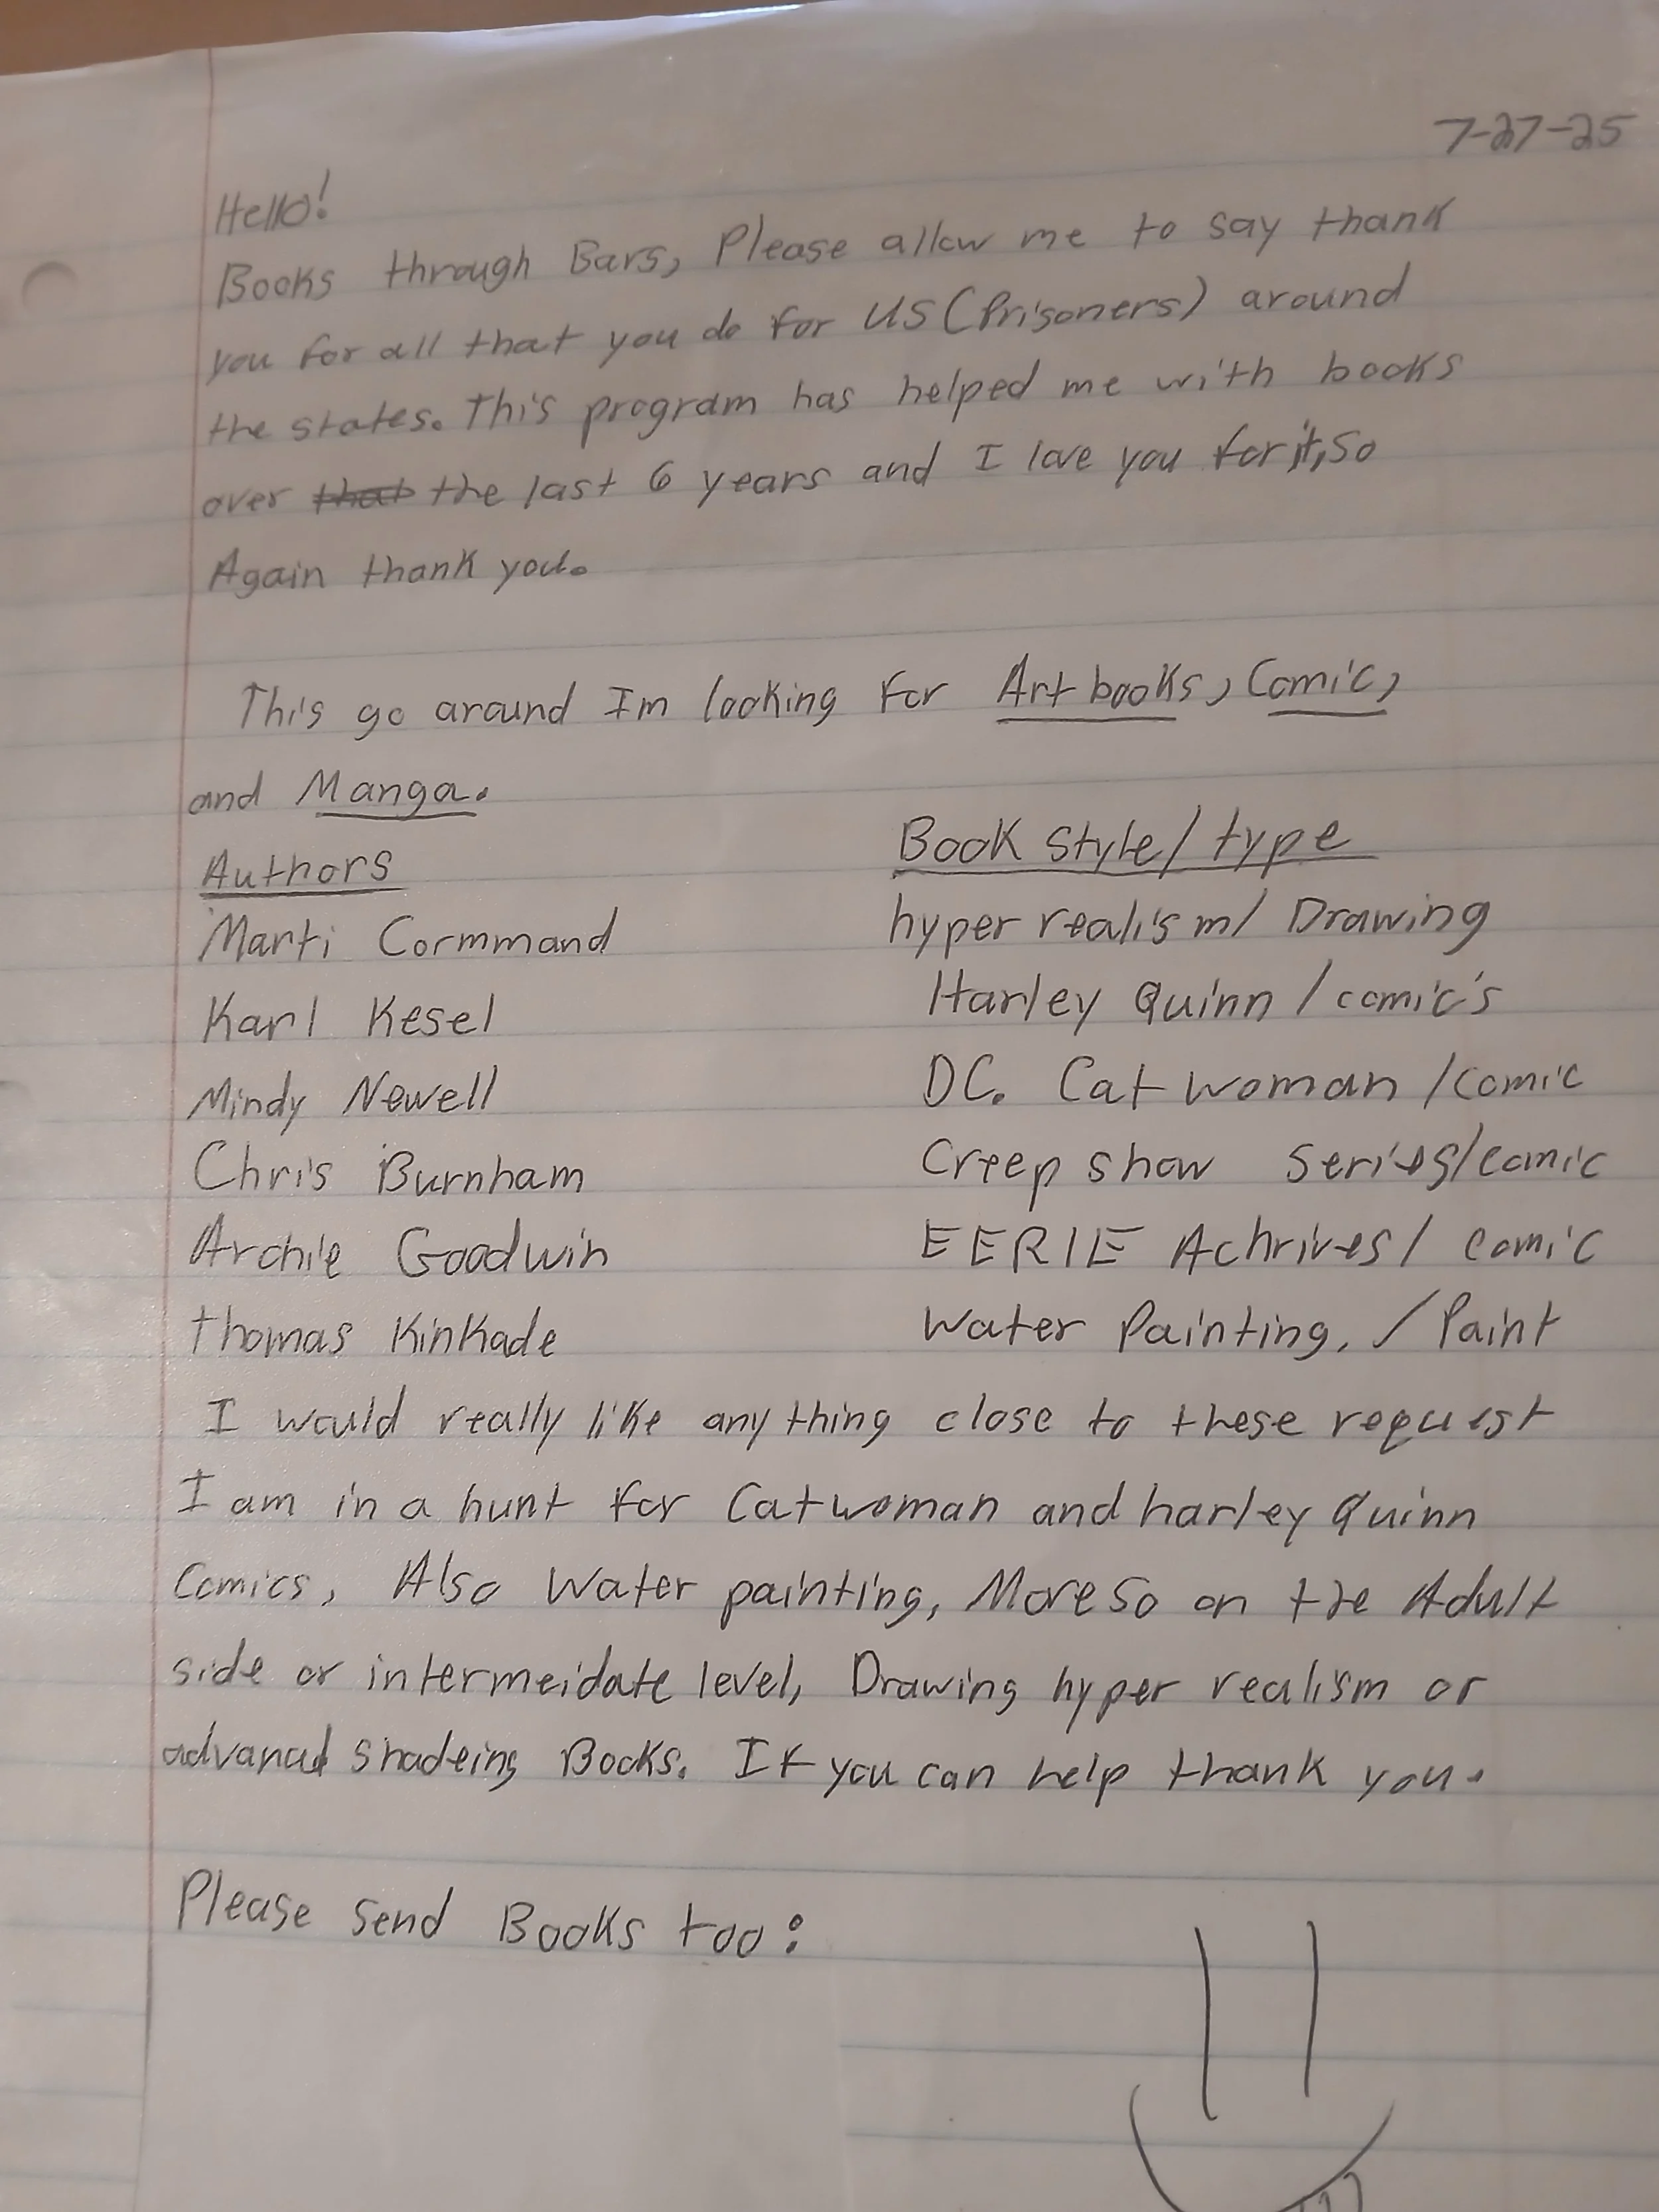 7-27-25
Hello!
Books through Bars, Please allow me to say thank
you for all that you do for US (Prisoners) around
the states. This program has helped me with books
over that the last 6 years and I love you for it, So
Again thank you.
This go around Im looking for Art books, Comic,
and Manga.
Authors Book Style/type
Marti Cormmand hyper realism/ Drawing
Karl Kesel Harley Quinn / comic's
Mindy Newell DC. Cat woman /comic
Chris Burnham Creep show Series/comic
Archie Goodwin EERIE Achrives/ comic
thomas Kinkade Water Painting. / Paint
I would really like any thing close to these request
I am in a hunt for Catwoman and harley Quinn
Comics, Also Water painting, More so on the Adult
side or intermeidate level, Drawing hyper realism or
advanced shadeing Books. If you can help thank you.
Please Send Books too: